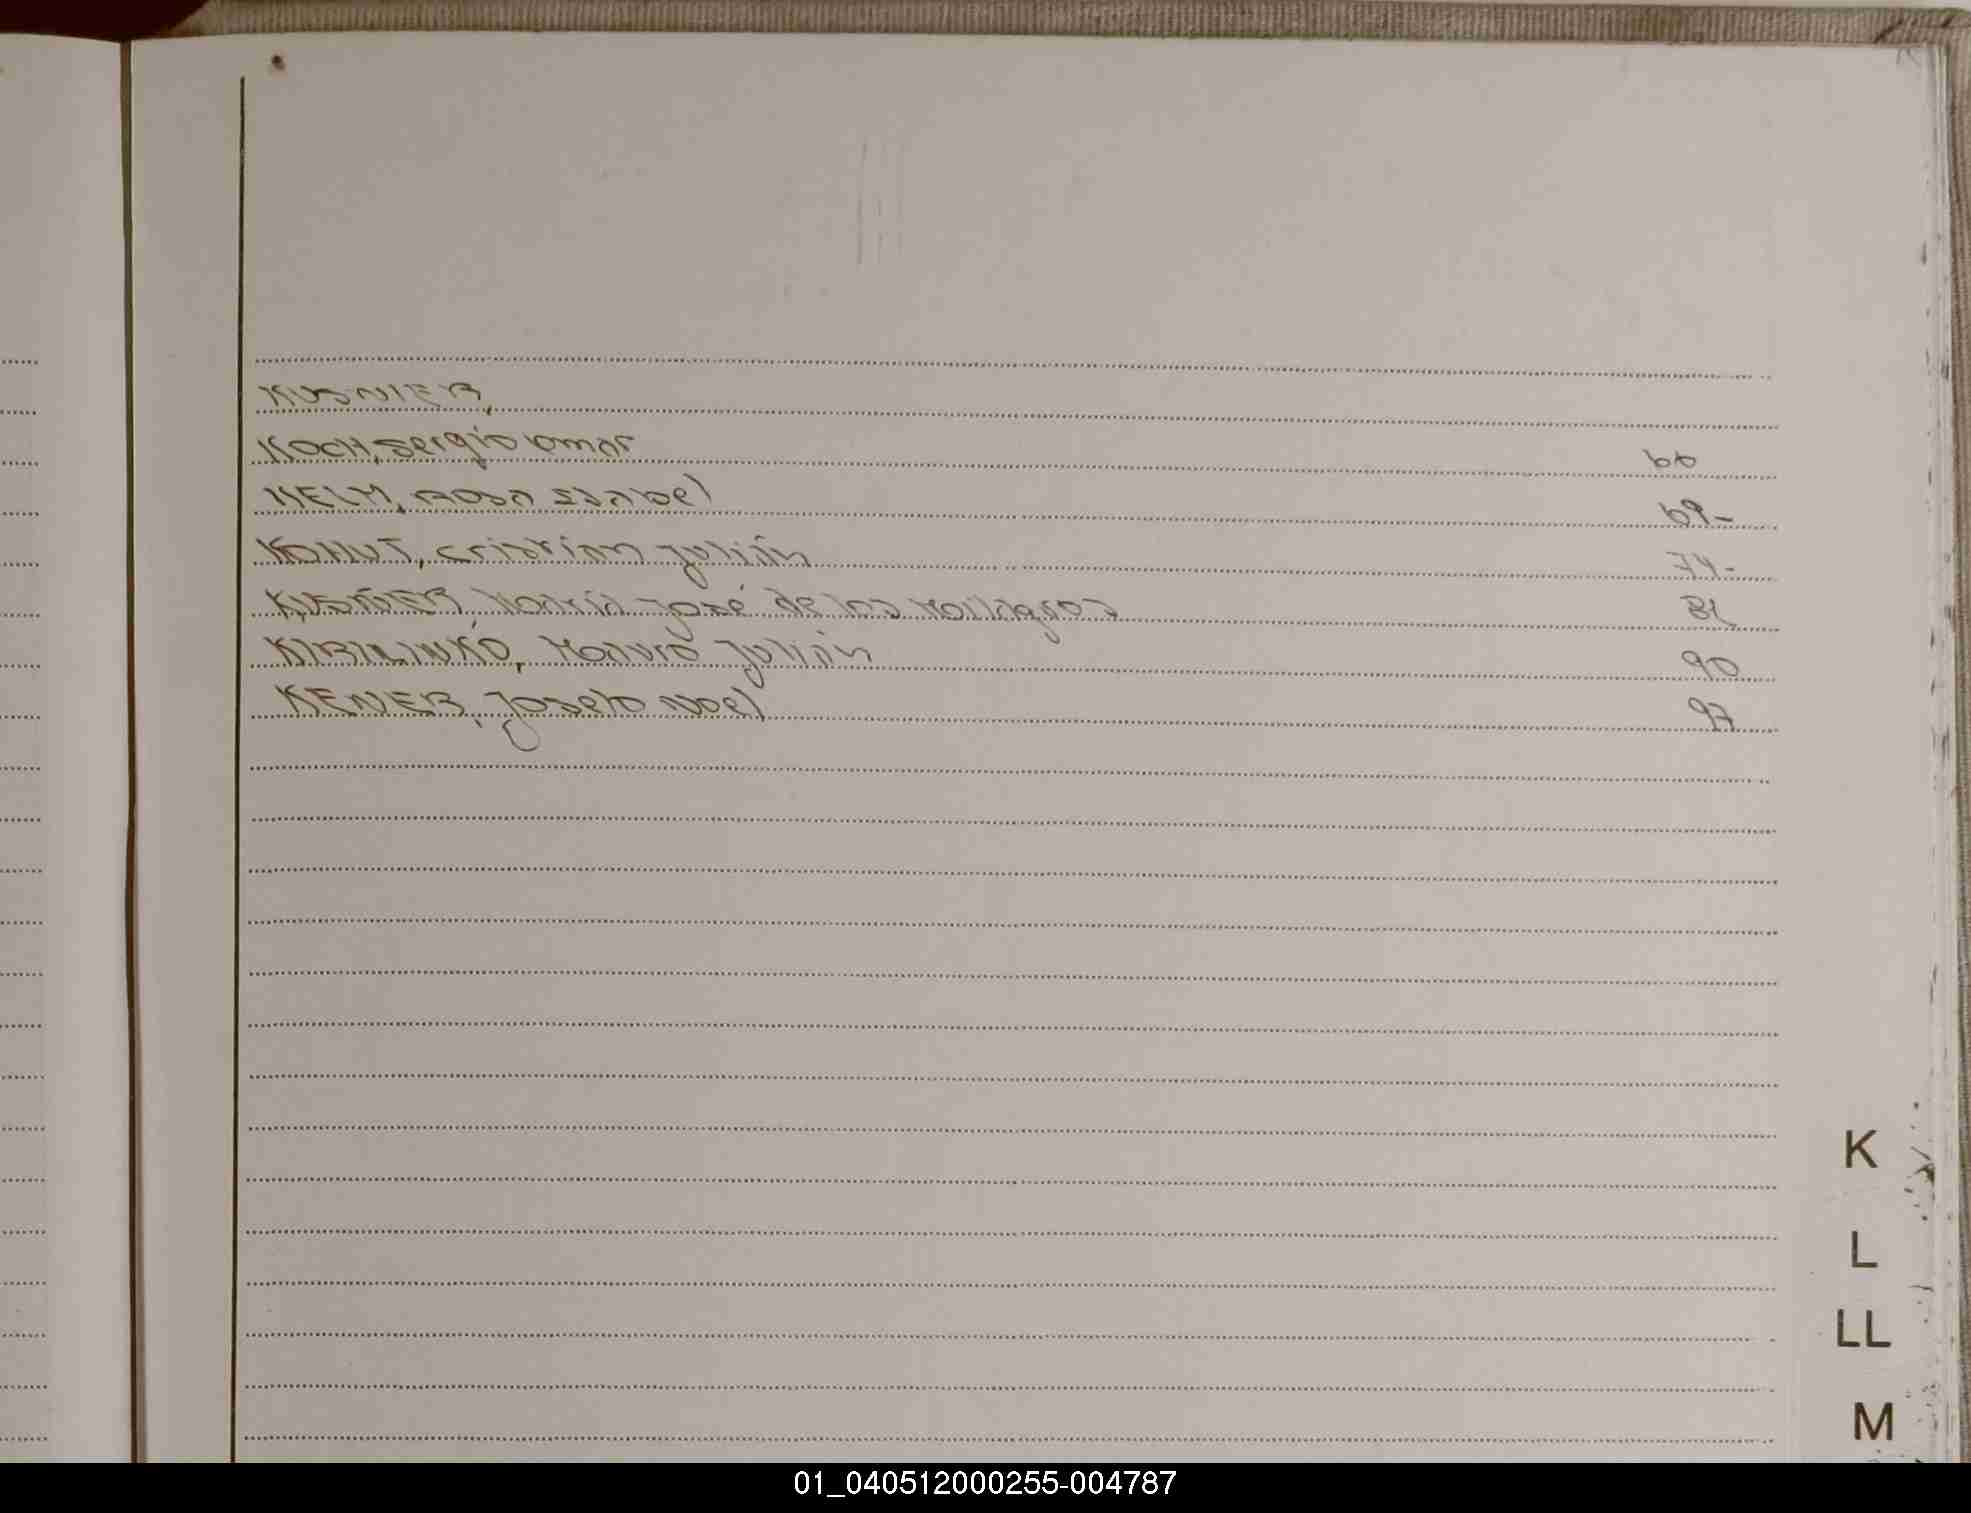 KUSNIER,
KOCH, Sergio Omar 66
KELM, Rosa Isabel 69-
KOHUT, Cristian Julián 74-
KUSNIER María José de los Milagros
KIRILINKO, Mauro Julián 90
KENER, Joselo Noel 97
K
L
LL
M
01_040512000255-004787